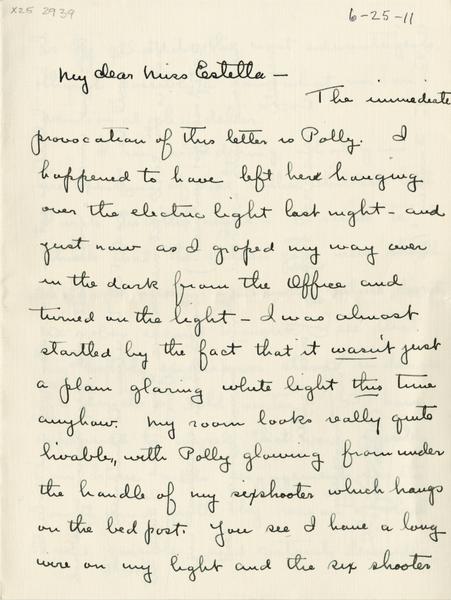 X25 2939
6-25-11
My dear Miss Estella —
The immediate
provocation of this letter is Polly. I
happened to have left her hanging
over the electric light last night - and
just now as I groped my way over
in the dark from the Office and
turned on the light - I was almost
startled by the fact that it wasn't just
a plain glaring white light this time
anyhow. My room looks really quite
livable, with Polly glowing from under
the handle of my sixshooter which hangs
on the bed post. You see I have a long
wire on my light and the six shooter